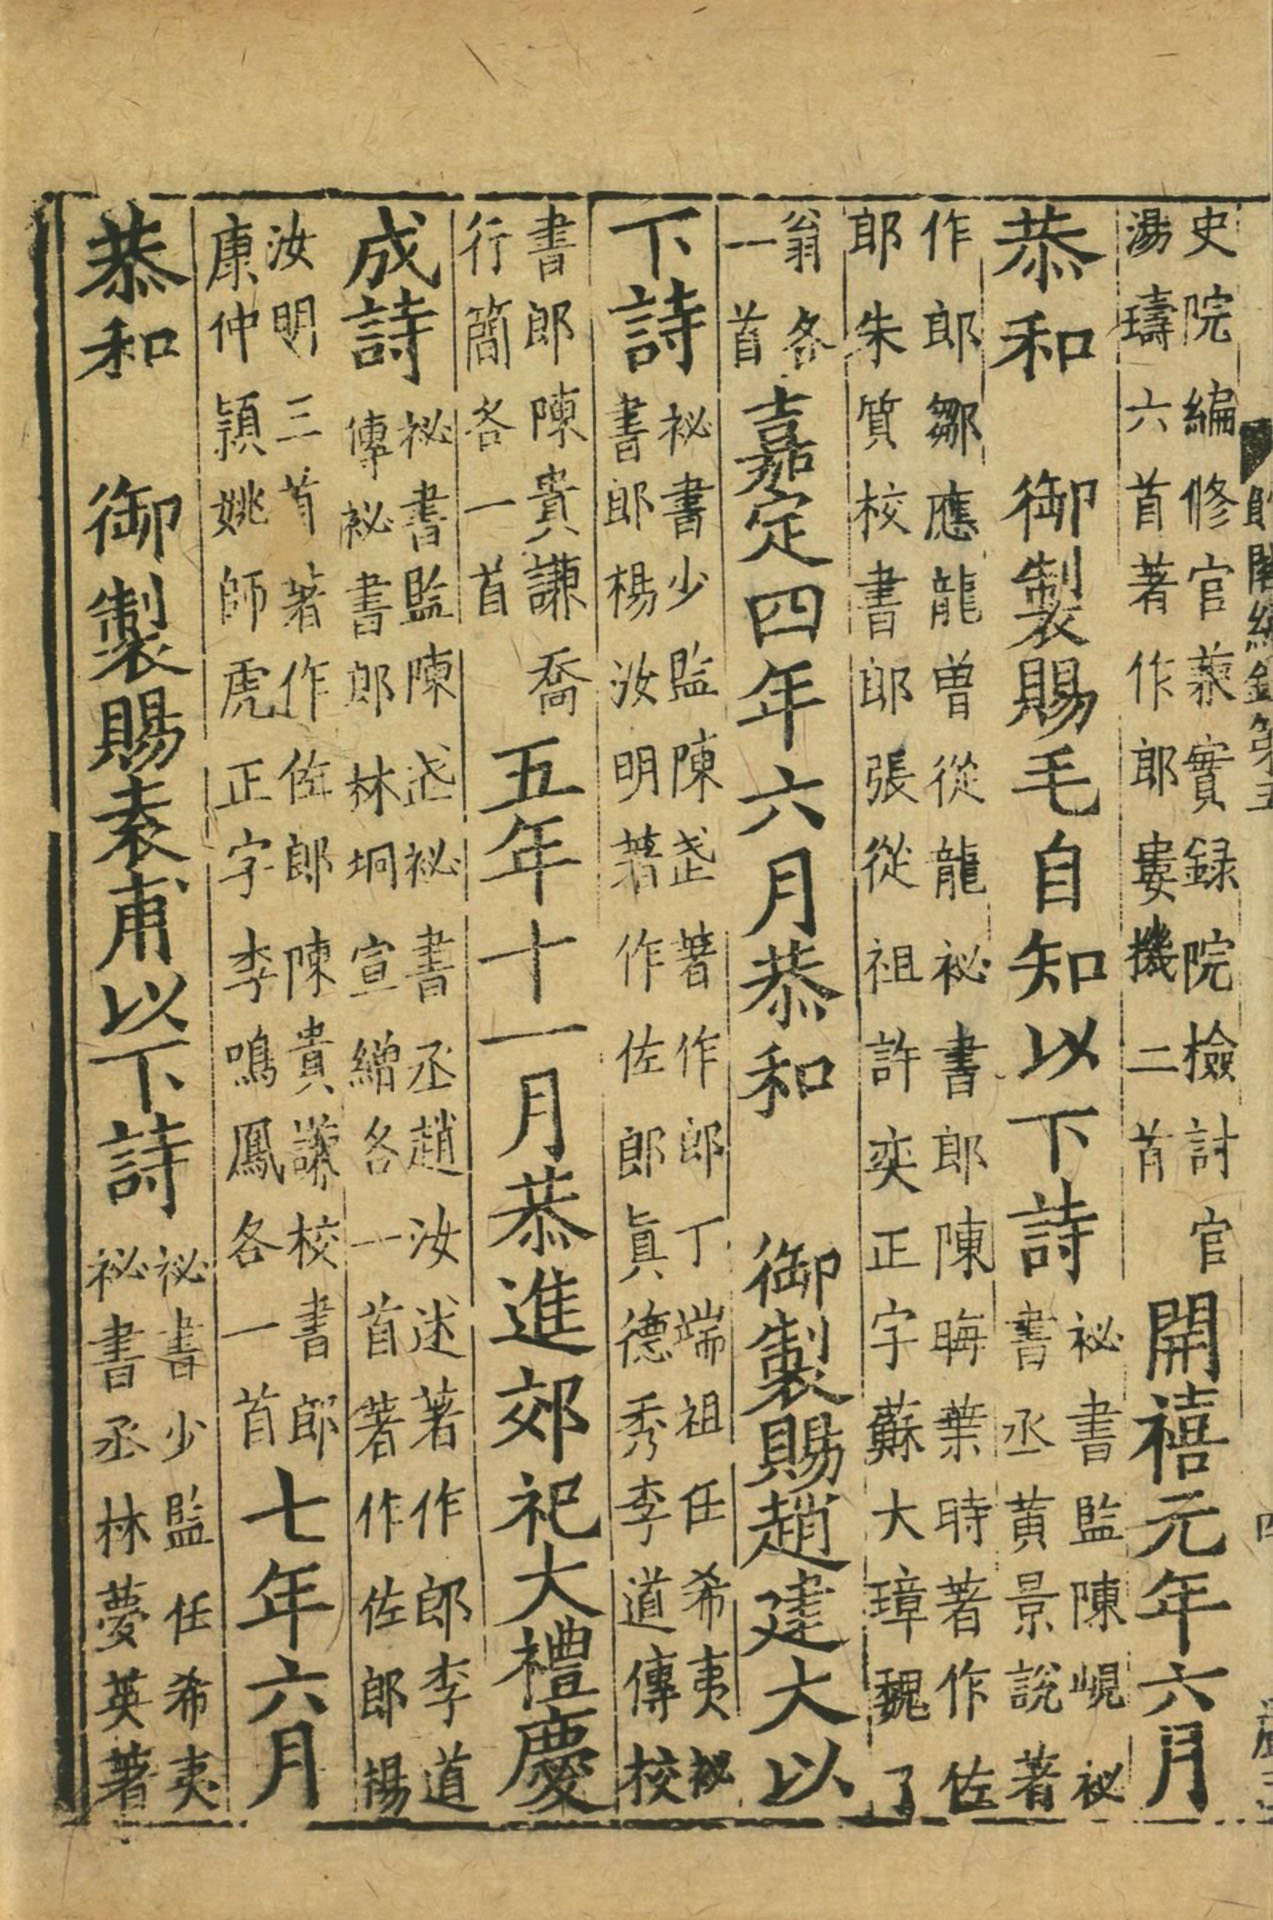 史院編修官蒹實録院檢討官
湯璹六首著作郎婁機二首
開禧元年六月
恭和　御製賜毛自知以下詩
祕書監陳峴祕
書丞黄景說著
作郎鄒應龍曽從龍祕書郎陳晦葉時著作佐
郎朱質校書郎張從祖許奕正字蘇大璋魏了
翁各
一首
嘉定四年六月恭和　御製賜趙建大以
下詩
祕書少監陳武著作郎丁端祖任希夷祕
書郎楊汝明著作佐郎眞德秀李道傳校
書郎陳貴謙喬
行簡各一首
五年十一月恭進郊祀大禮慶
成詩
祕書監陳武祕書丞趙汝述著作郎李道
傳祕書郎林垌宣繒各一首著作佐郎楊
汝明三首著作佐郎陳貴謙校書郎
康仲頴姚師虎正字李鳴鳳各一首
七年六月
恭和　御製賜袁甫以下詩
祕書少監任希夷
祕書丞林夢英著